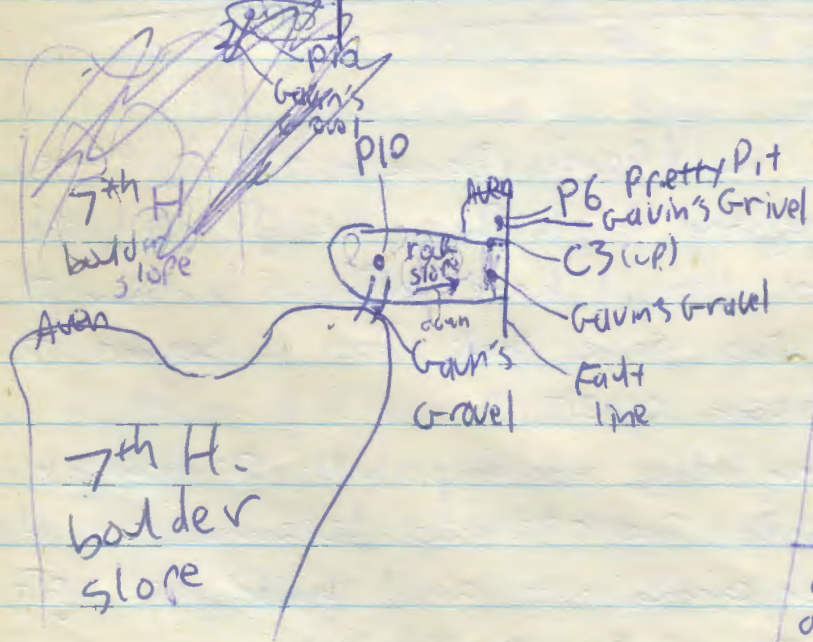 P10
Gavin's
Gravel
7th H
boulder
slope
P10
Aven
P6 Pretty Pit
Gavin's Grivel
C3 (up)
rock
slope
down
Gavin's Gravel
Gavin's
Gravel
Fault
line
Aven
7th H.
boulder
slope